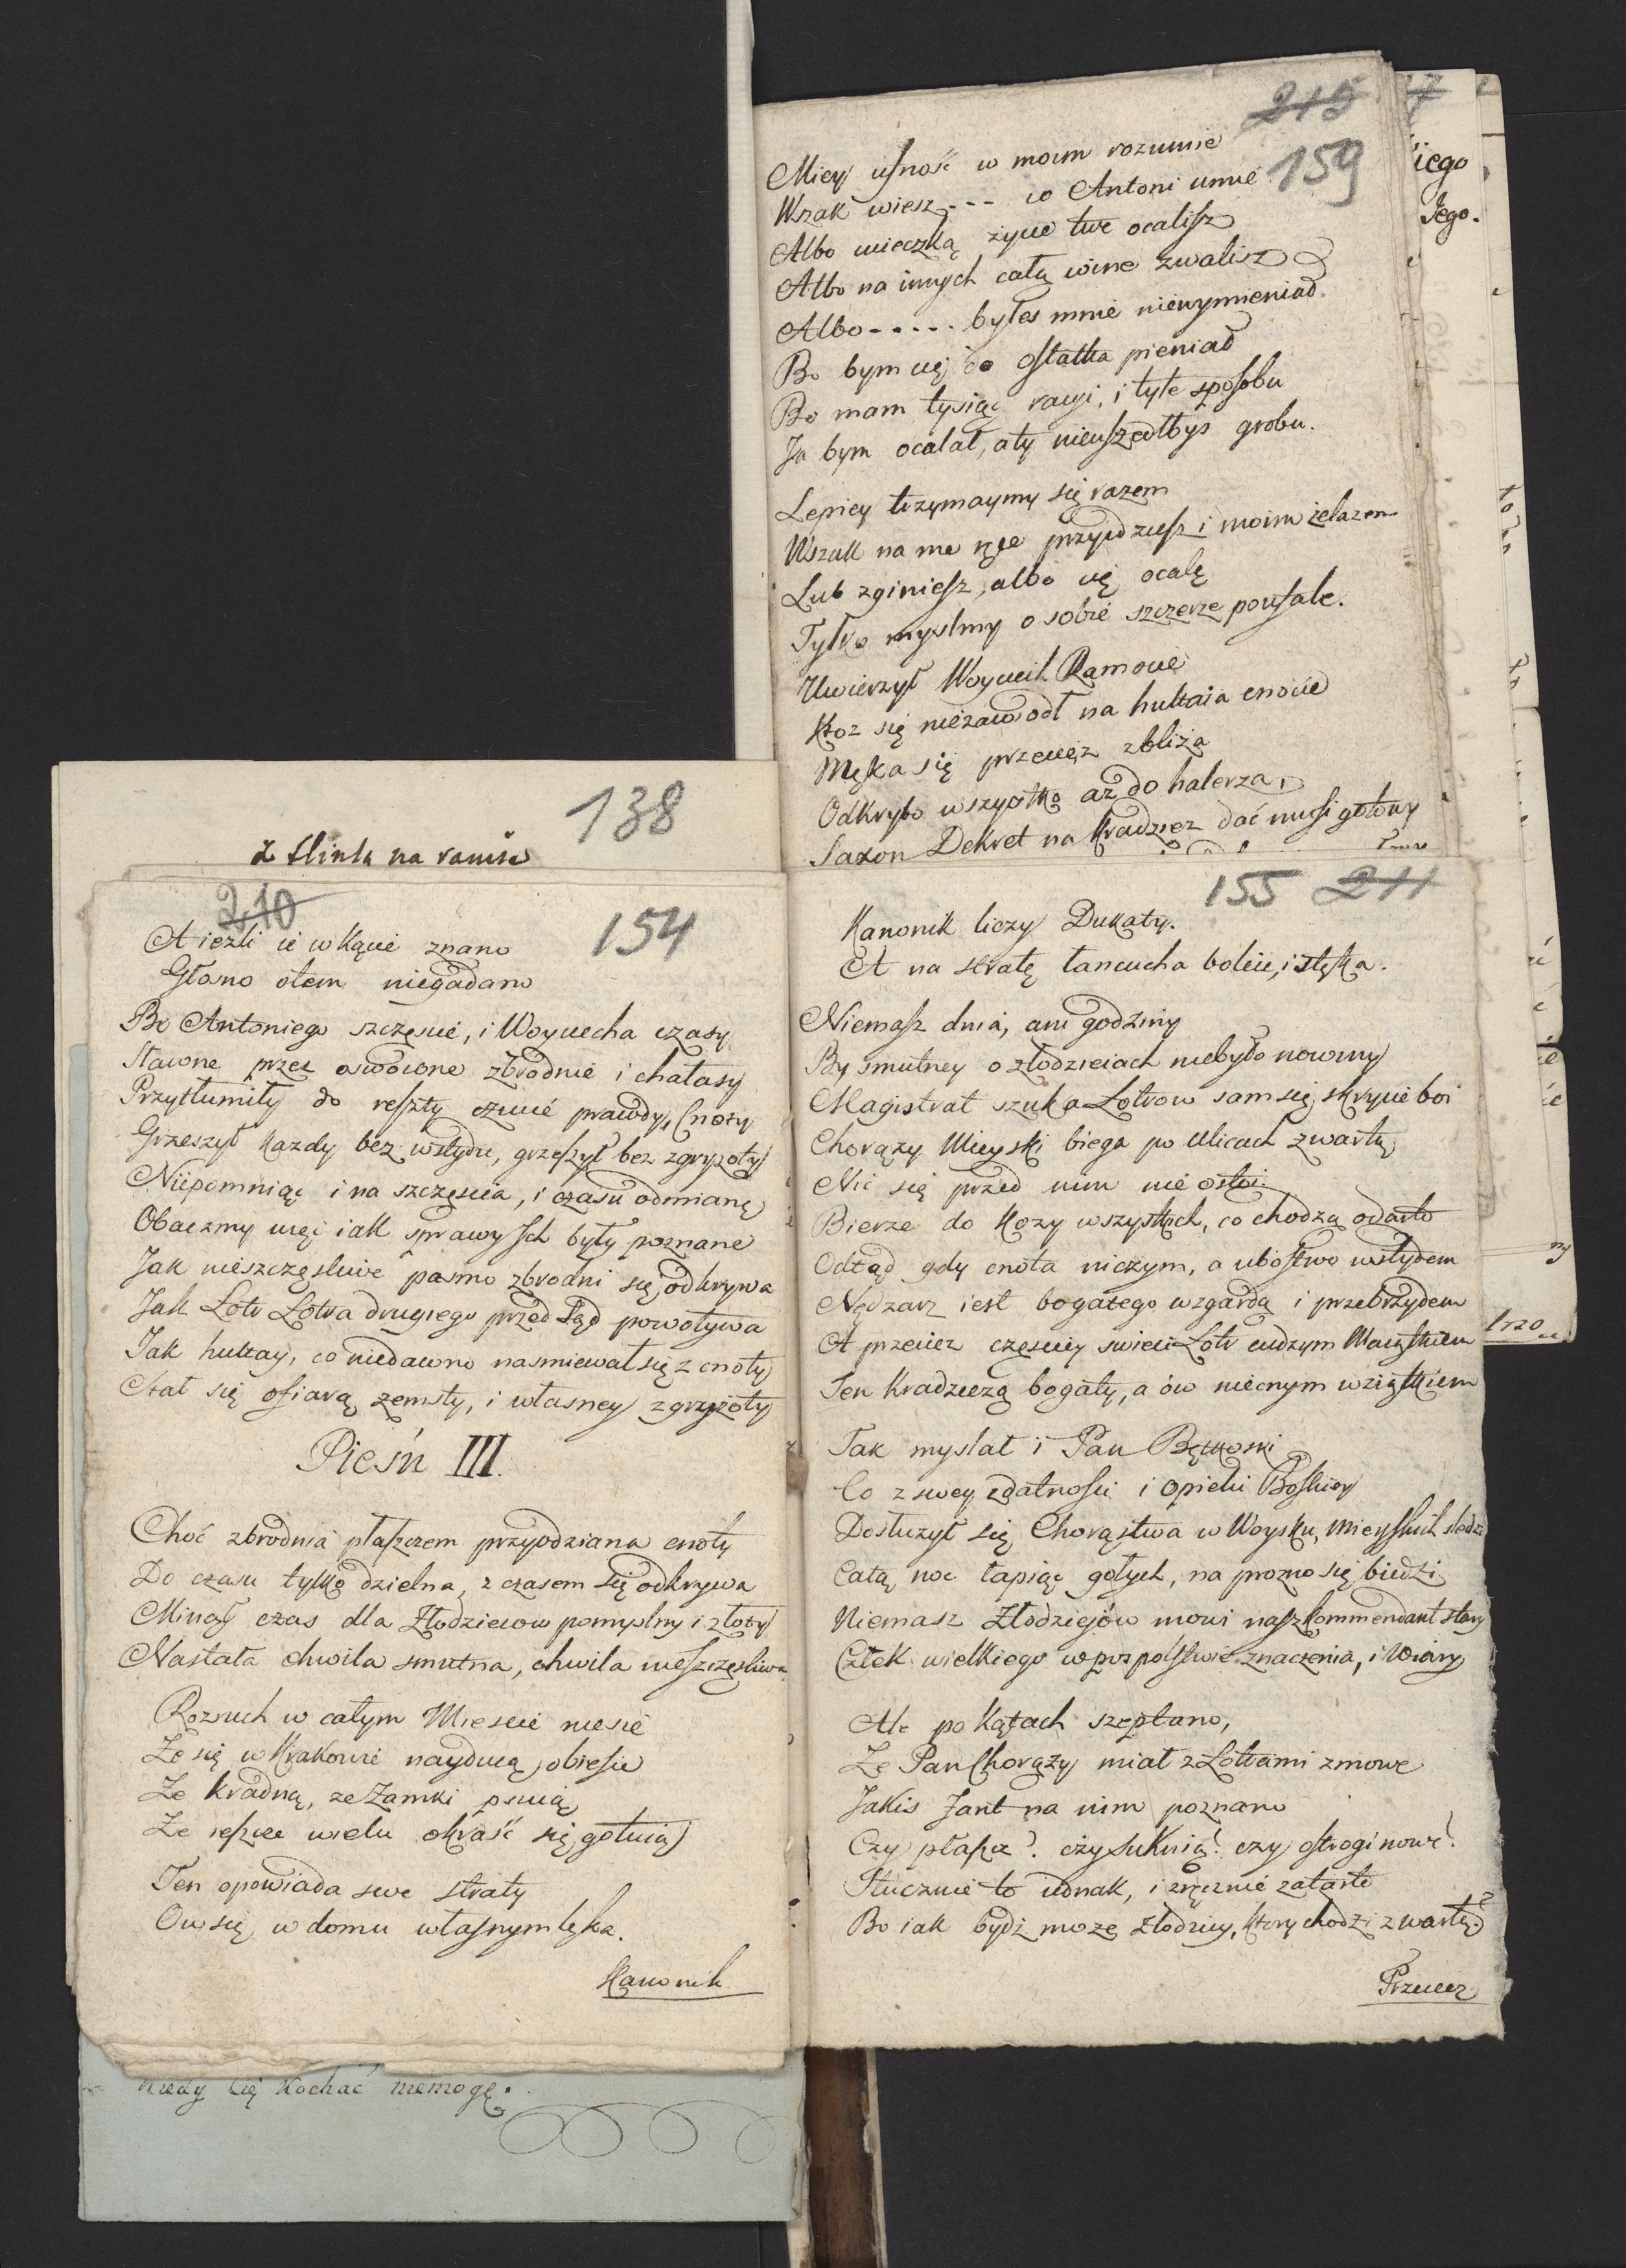 215
159
Miey ufność w moim rozumie
Wszak wiesz --- co Antoni umie
Albo ucieczką życie twe ocalisz
Albo na innych całą winę zwalisz
Albo ----- byłeś mnie niewymieniał
Bo bym cię do ostatka pieniał
Bo mam tysiąc racyi, i tyle sposobu
Ja bym ocalał, a ty nieuszedłbyś grobu.
Lepiey trzymaymy się razem
Wszak na me ręce przyydziesz i moim żelazem
Lub zginiesz, albo cię ocalę
Tylko myslmy o sobie szczerze poufale.
Uwierzył Woyciech Ramocie
Któż się niezawiodł na hultaia cnocie
Męka się przecięż zbliża
Odkryto wszystko aż do halerza,
Saxon Dekret na Kradzież dać musi gotowy
138
z flinta na ramie
210
154
A ieżli ie w Kącie znano
Głośno otem niegadano
Bo Antoniego szczęście, i Woyciecha czasy
Sławne przez oswoione zbrodnie i hałasy
Przytłumiły do reszty czucie prawdy, Cnoty
Grzeszył każdy bez wstydu, grzeszył bez zgryzoty
Niepomniąc i na szczęścia, i czasu odmianę
Obaczmy więc iak sprawy Ich były poznane
Jak nieszczęśliwe pasmo zbrodni się odkrywa
Jak Łotr Łotra drugiego przed Sąd powoływa
Jak hultay, co niedawno nasmiewał się z cnoty
Stał się ofiarą zemsty, i własney zgryzoty
Pieśń III.
Choć zbrodnia płaszczem przyodziana cnoty
Do czasu tylko dzielna, z czasem się odkrywa
Minął czas dla Złodzieiow pomyslny i złoty
Nastała chwila smutna, chwila nieszczęśliwa.
Rozruch w całym Miescie niesie
Ze się w Krakowie nayduią obiesie
Ze kradną, ze Zamki psuią
Ze ieszcze wielu okraść się gotuią
Ten opowiada swe straty
Ow się w domu własnym lęka.
Kanonik
155 211
Kanonik liczy Dukaty.
A na stratę łancucha boleie, i stęka.
Niemasz dnia, ani godziny
By smutney o złodzieiach niebyło nowiny
Magistrat szuka Łotrow sam się skrycie boi
Chorąży Mieyski biega po Ulicach z wartą
Nic się przed nim nie ostoi.
Bierze do Kozy wszystkich, co chodzą odarto
Odtąd gdy cnota niczym, a ubóstwo wstydem
Nędzarz iest bogatego wzgardą i przebrzydem
A przecież częściey swieci Łotr cudzym Maiątkiem
Ten Kradzieżą bogaty, a ów niecnym wziątkiem
Tak myslał i Pan Bętkoski
Co z swey zdatności i opieki Boskiey
Dosłużył się Chorąstwa w Woysku, Mieyskich sledzi
Całą noc łapiąc gołych, na prozno się biedzi
Niemasz Złodziejów mowi nasz kommendant stary
Człek wielkiego w pospolstwie znaczenia, i Wiary
Ale po Kątach szeptano,
Ze Pan Chorąży miał z Łotrami zmowę
Jakiś fant na nim poznano
Czy płaszcz? czy suknią? czy ostrogi nowe?
Stucznie to iednak, i zręcznie zatarto
Bo iak bydz może złodziey, ktory chodzi z wartą?
Przeciez
iego
Jego.
kiedy Cię kochać niemogę.